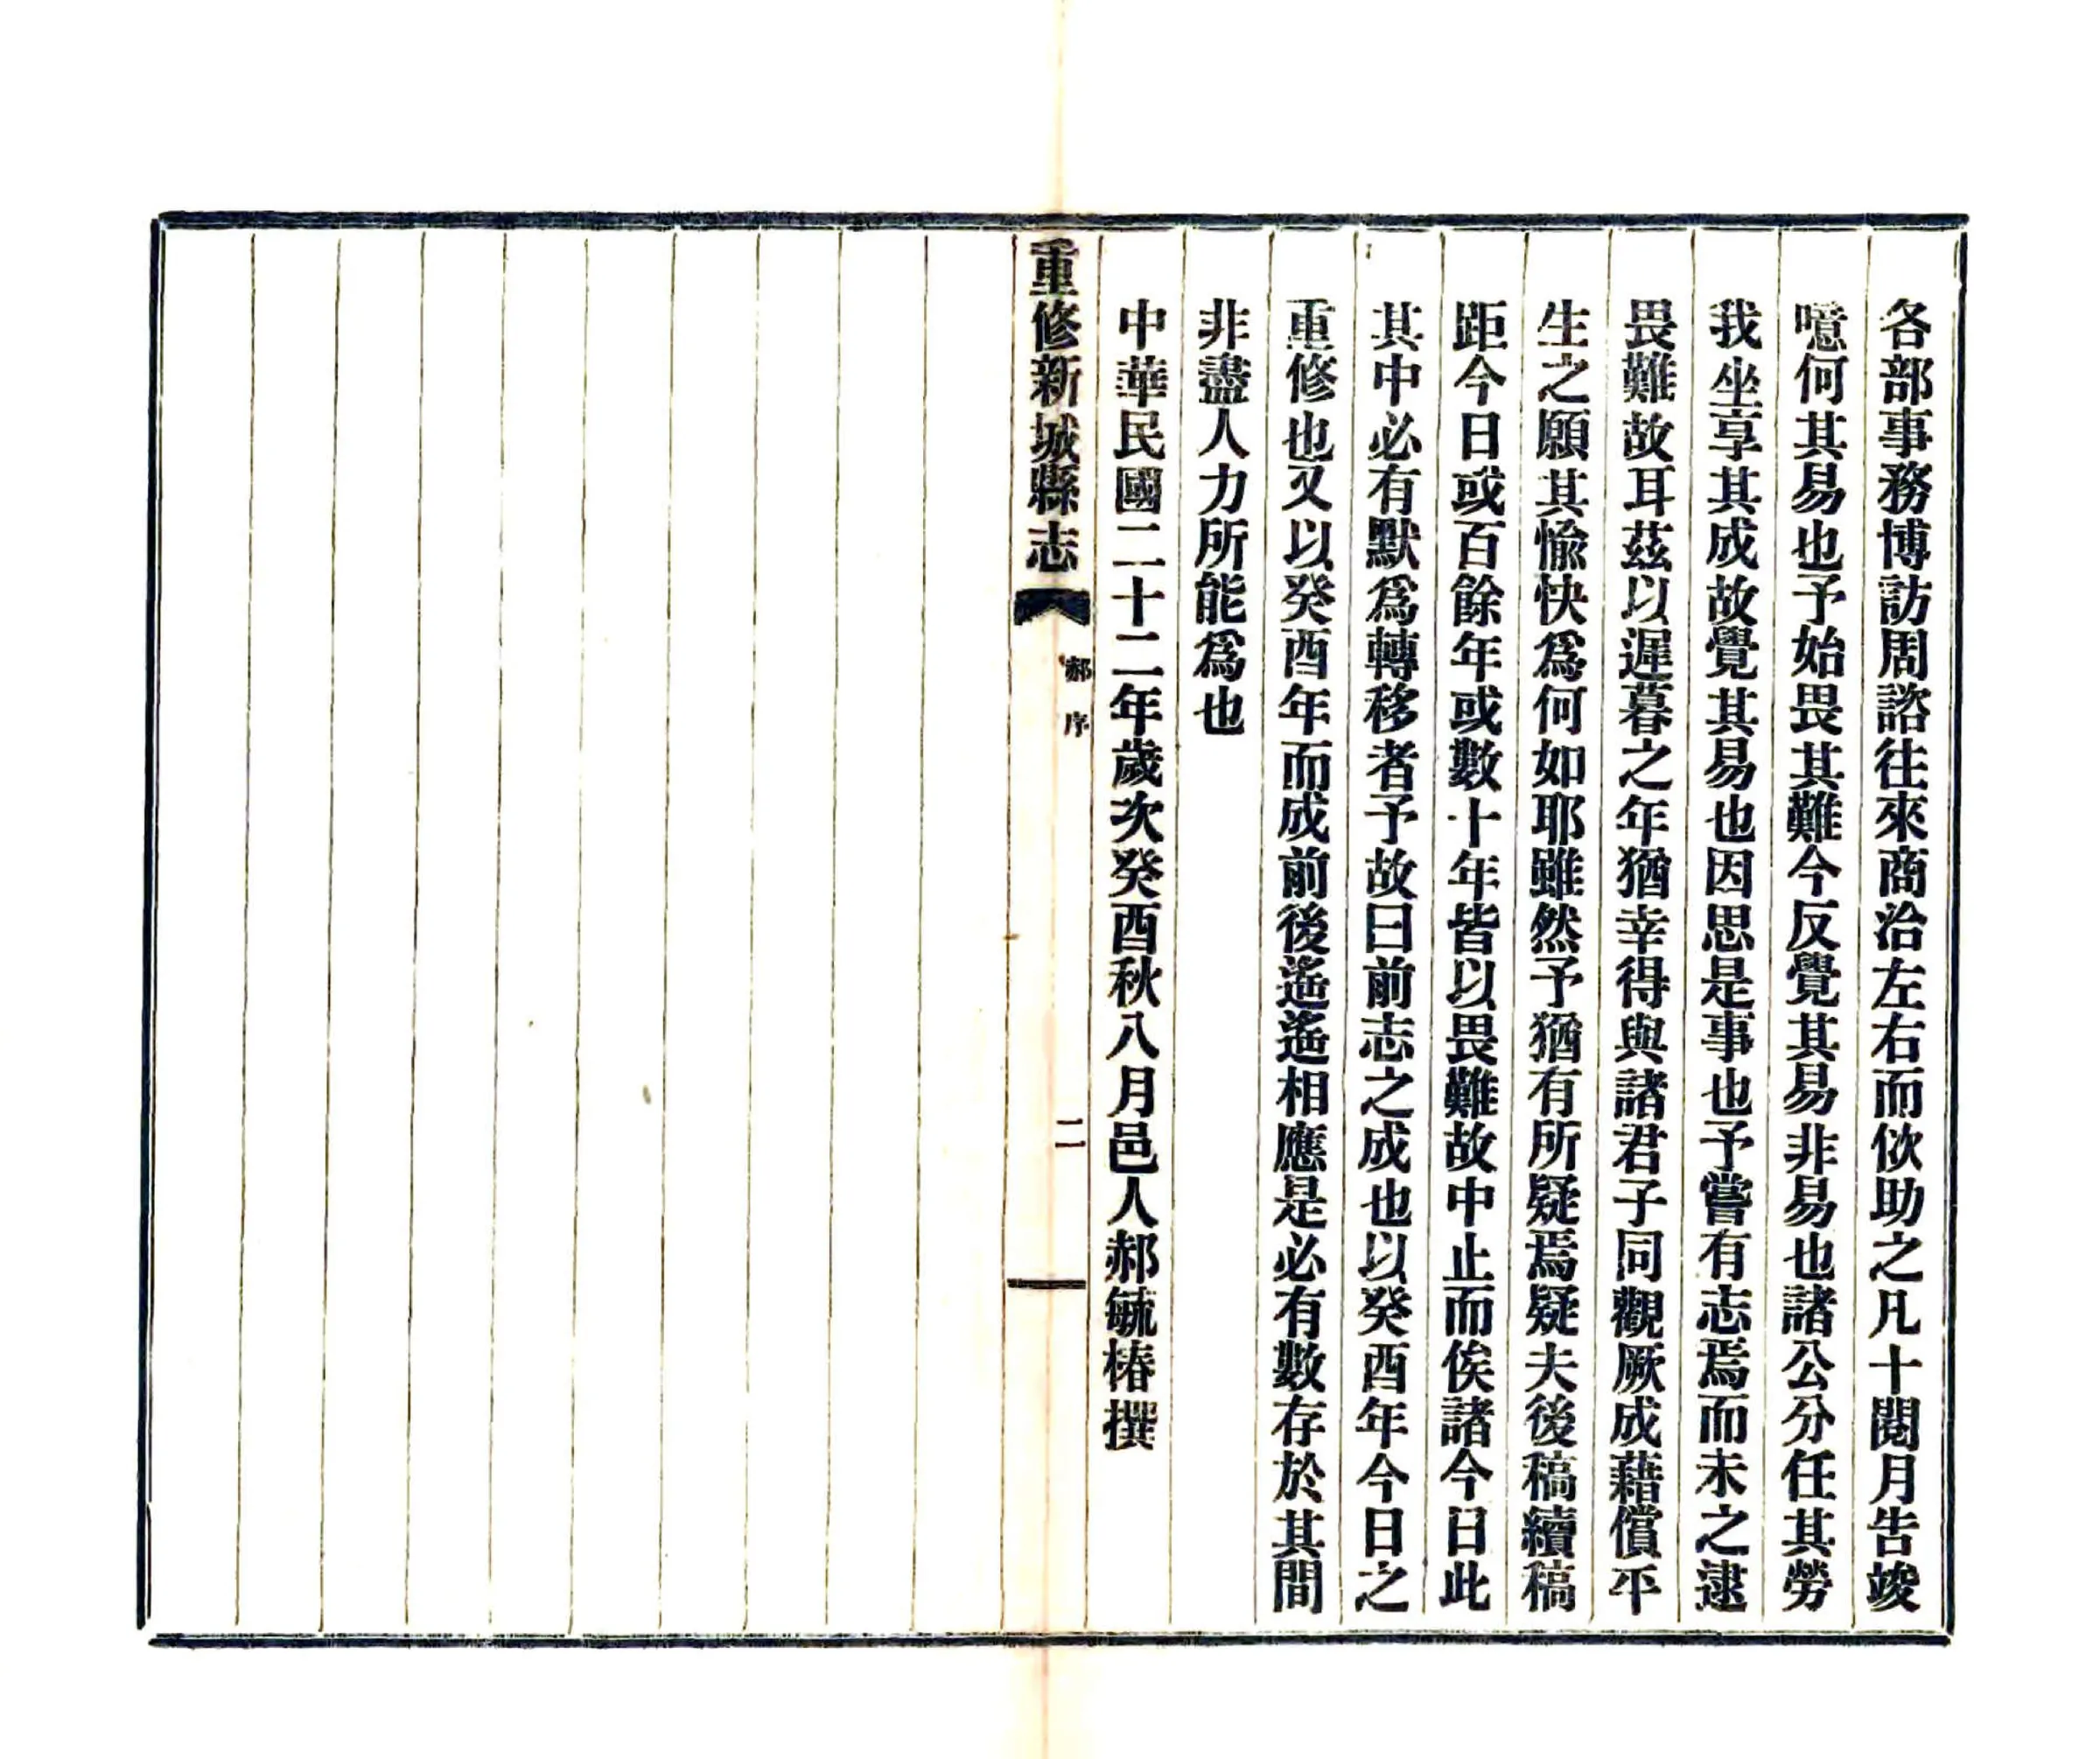 各部事務博訪周諮往來商洽左右而佽助之凡十閱月告竣
噫何其易也予始畏其難今反覺其易非易也諸公分任其勞
我坐享其成故覺其易也因思是事也予嘗有志焉而未之逮
畏難故耳茲以遲暮之年猶幸得與諸君子同觀厥成藉償平
生之願其愉快爲何如耶雖然予猶有所疑焉疑夫後稿續稿
距今日或百餘年或數十年皆以畏難故中止而俟諸今日此
其中必有默爲轉移者予故曰前志之成也以癸酉年今日之
重修也又以癸酉年而成前後遙遙相應是必有數存於其間
非盡人力所能爲也
中華民國二十二年歲次癸酉秋八月邑人郝毓椿撰
重修新城縣志 郝序 二